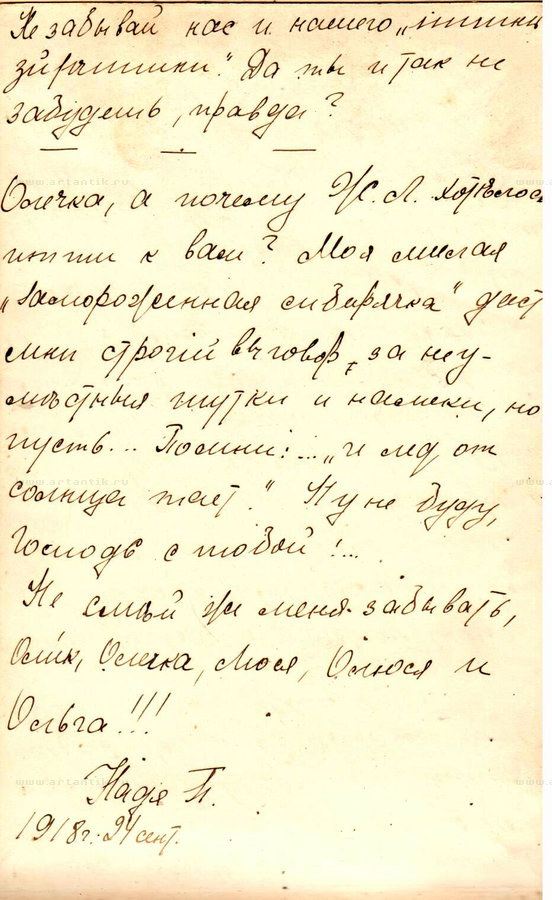 Не забывай нас и нашего „
Да ты и так не
забудешь, правда?
Олечка, а почему Ж. Л. хотѣлось
итти к вам? Моя милая
„замороженная сибирячка" даст
мнѣ строгій выговор, за неу-
мѣстныя шутки и намеки, но
пусть... Помни: ... „и лед от
солнца тает." Ну не буду,
Господь с тобой!...
Не смѣй же меня забывать,
Олик, Олечка, Люся, Олюся и
Ольга!!!
Надя П.
1918 г. 24 сент.
www.artantik.ru